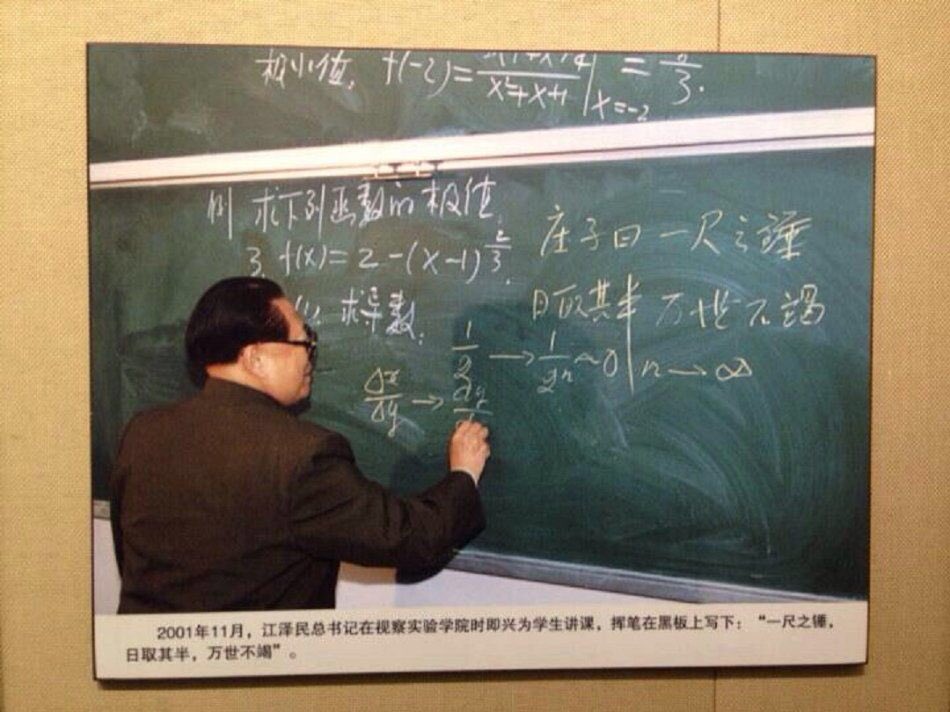 极小值, f(-2) = / x²+x+1 | x=-2 = / 3.
例 求下列函数的极值.
3. f(x) = 2 - (x-1)^(2/3).
求导数:
庄子曰 一尺之锤
日取其半 万世不竭
1/2 → 1/2ⁿ ~ 0 | n → ∞
Δx/Δy → dy/d
2001年11月，江泽民总书记在视察实验学院时即兴为学生讲课，挥笔在黑板上写下：“一尺之锤，
日取其半，万世不竭”。